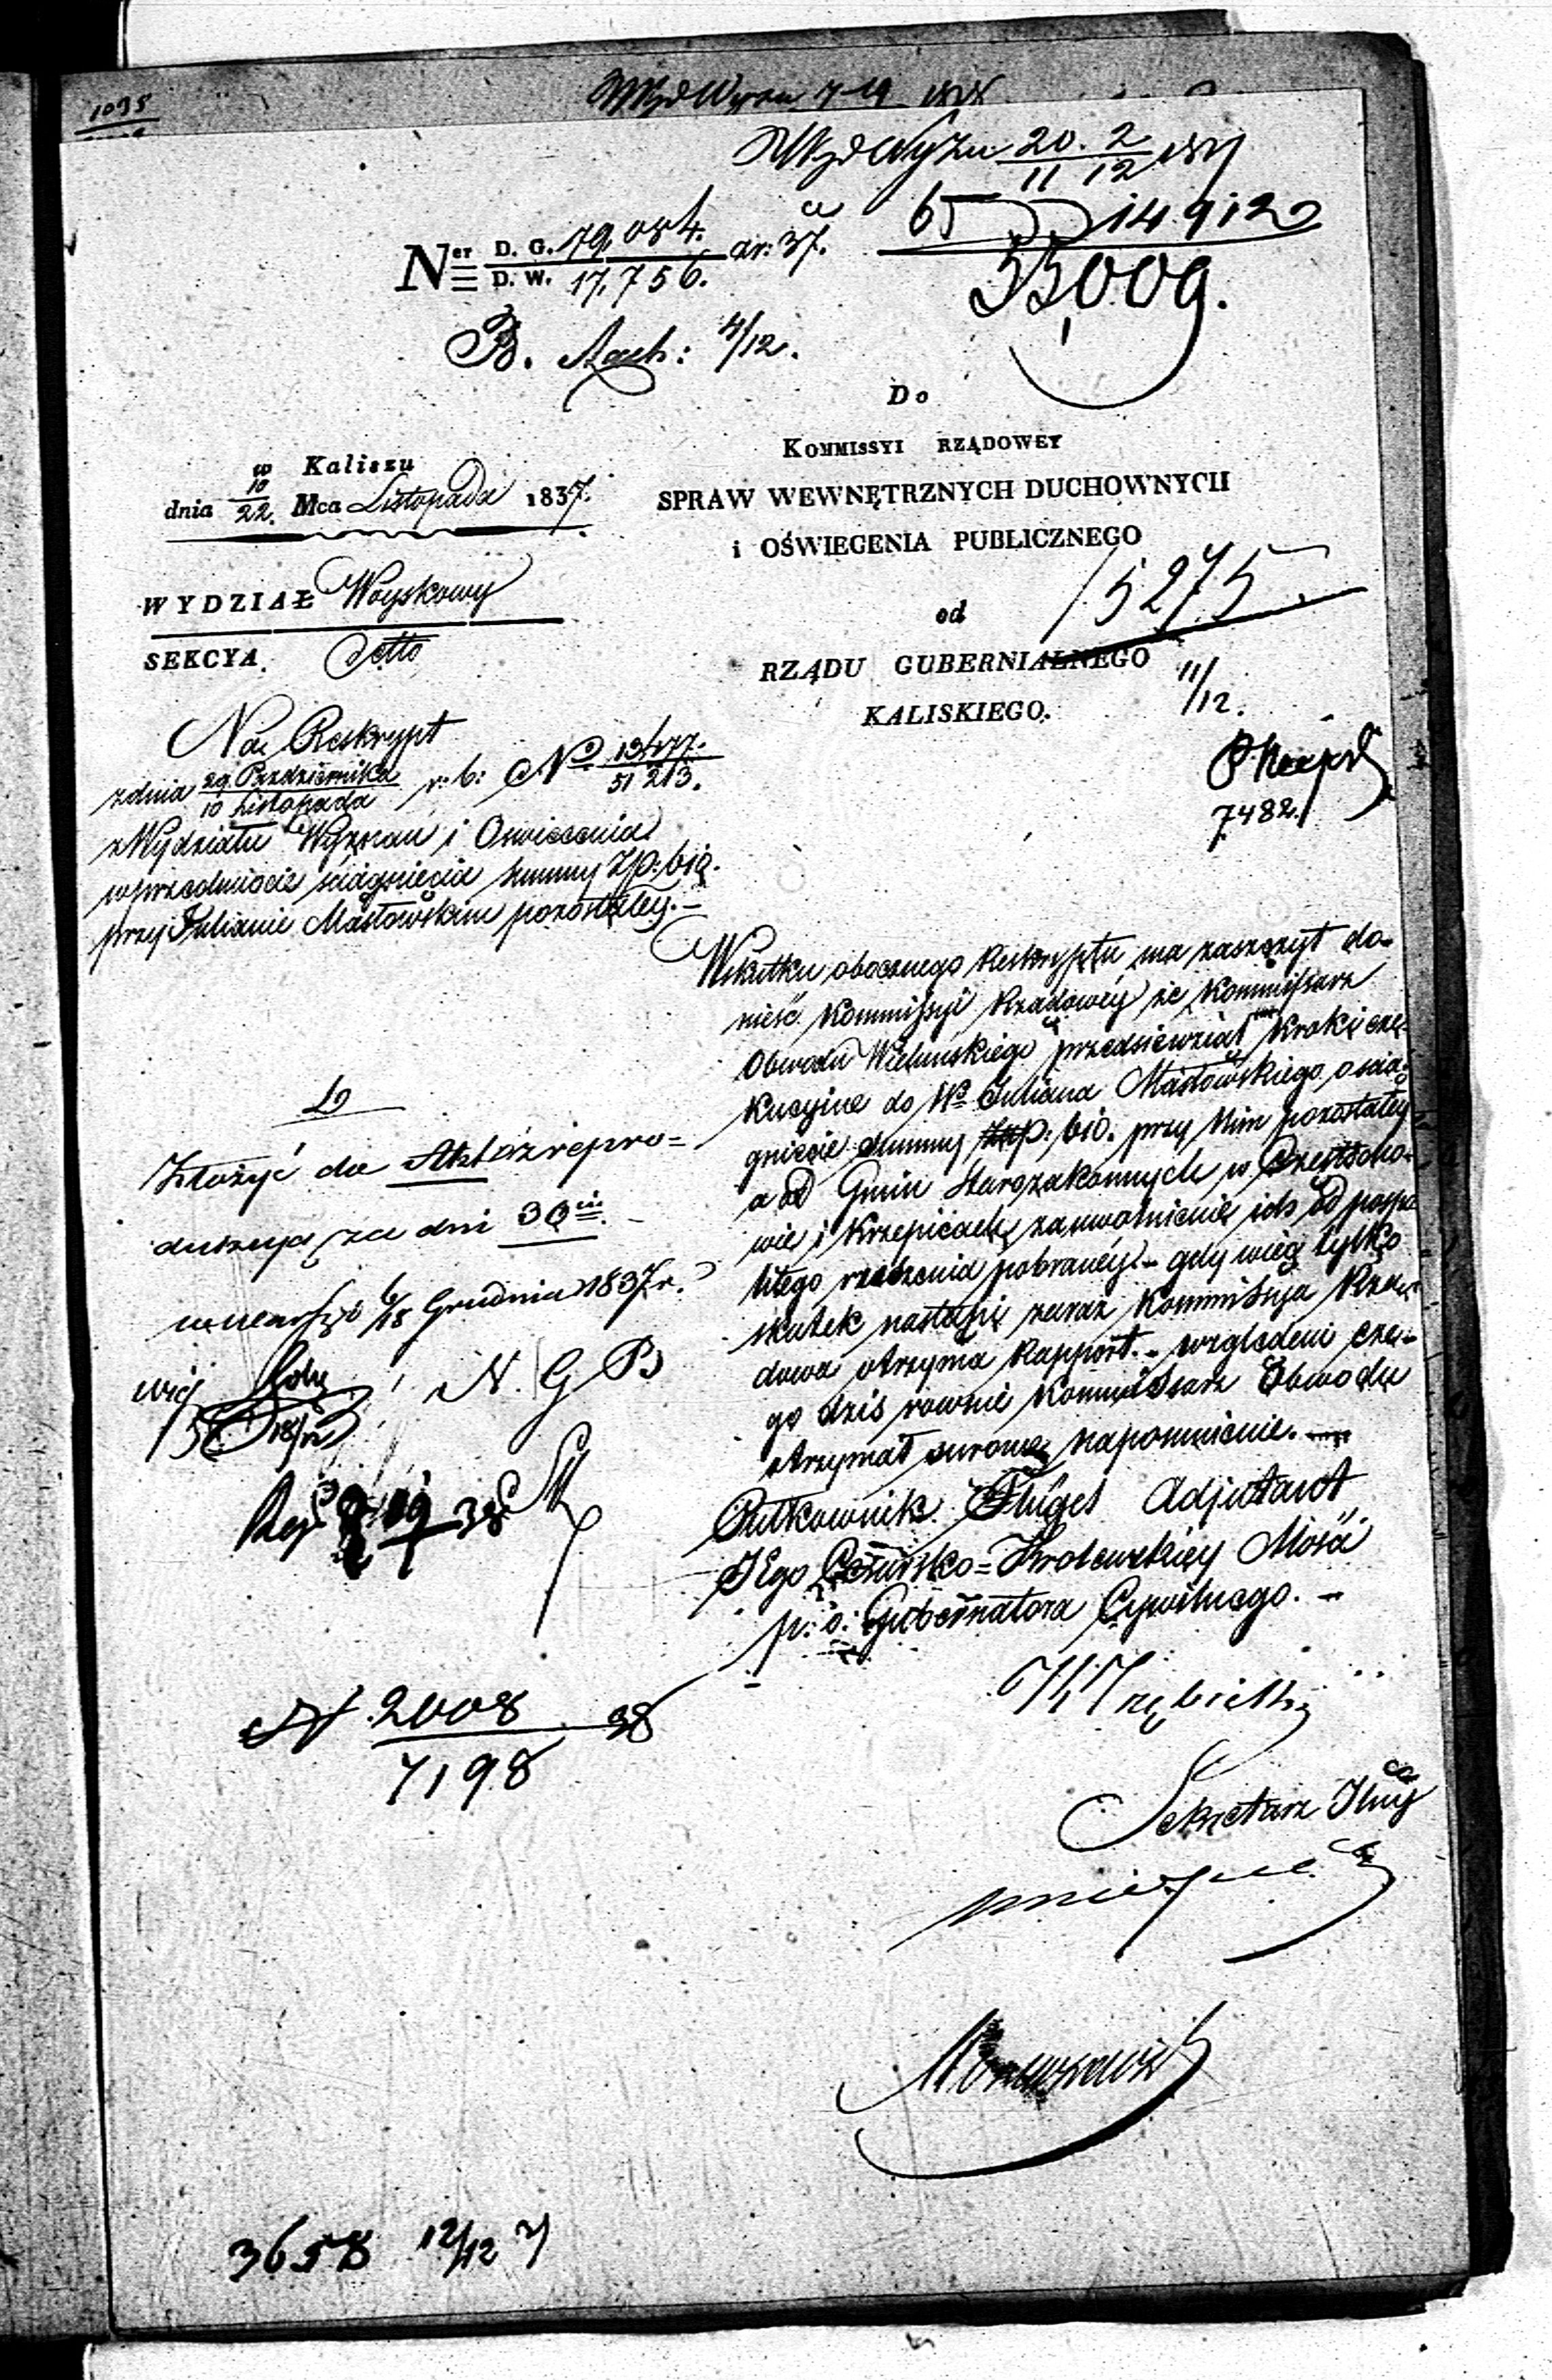 1095
20. 2
11 12
14912
Ner D. G. 79,054. ar: 37.
D. W. 17,756.
33,009.
B. Rach: 4/12.
Do
KOMMISSYI RZĄDOWEY
SPRAW WEWNĘTRZNYCH DUCHOWNYCH
i OŚWIECENIA PUBLICZNEGO
15275
od
RZĄDU GUBERNIALNEGO
KALISKIEGO.
11/12.
7482
w Kaliszu
dnia 10/22. Mca Listopada 1837.
WYDZIAŁ Woyskowy
SEKCYA. Detto
Na Reskrypt
z dnia 29 Października r: b: No 13477.
10 Listopada 51213.
z Wydziału Wyznań i Oswiecenia
w przedmiocie sciągniecia summy Zp: 610.
przy Julianie Masłowskim pozostałey.-
Wskutku obocznego Reskryptu ma zaszczyt do-
nieść Kommissyi Rządowéy że Kommissarz
Obwodu Wieluńskiego przedsiewziął kroki exe-
kucyine do Wo Juliana Masłowskiego o scią-
gniecie summy Zp: 610. przy Nim pozostałey
a od Gmin Starozakonnych w Częstocho-
wie i Krzepicach za uwolnienie ich od pospo
litego ruszenia pobranéy.- gdy więc tylko
skutek nastąpi zaraz Kommissya Rzą-
dowa otrzyma Rapport.- względem cze-
go dziś rownie Kommissarz Obwodu
otrzymał surowe napomnienie.-
Pułkownik Fligel Adjutant
JEgo Cesarsko=Krolewskiey Mości
p: o: Gubernatora Cywilnego.-
Sekretarz Jlny
Złożyć do Akt z repro=
dukcyą za dni 30
w Warszie 6/18 Grudnia 1837 r.
N. G B
N. 2008 38
7198
3658 12/12